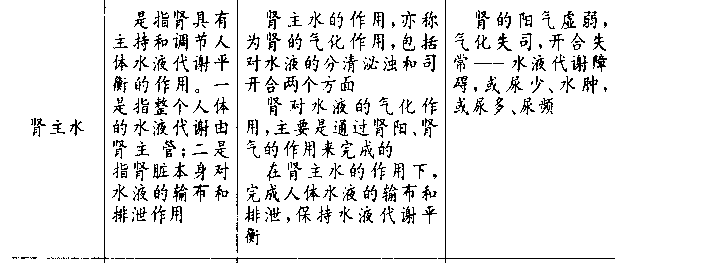 肾主水
是指肾具有
主持和调节人
体水液代谢平
衡的作用。一
是指整个人体
的水液代谢由
肾主管；二是
指肾脏本身对
水液的输布和
排泄作用
肾主水的作用，亦称
为肾的气化作用，包括
对水液的分清泌浊和司
开合两个方面
肾对水液的气化作
用，主要是通过肾阳、肾
气的作用来完成的
在肾主水的作用下，
完成人体水液的输布和
排泄，保持水液代谢平
衡
肾的阳气虚弱，
气化失司，开合失
常——水液代谢障
碍，或尿少、水肿，
或尿多、尿频